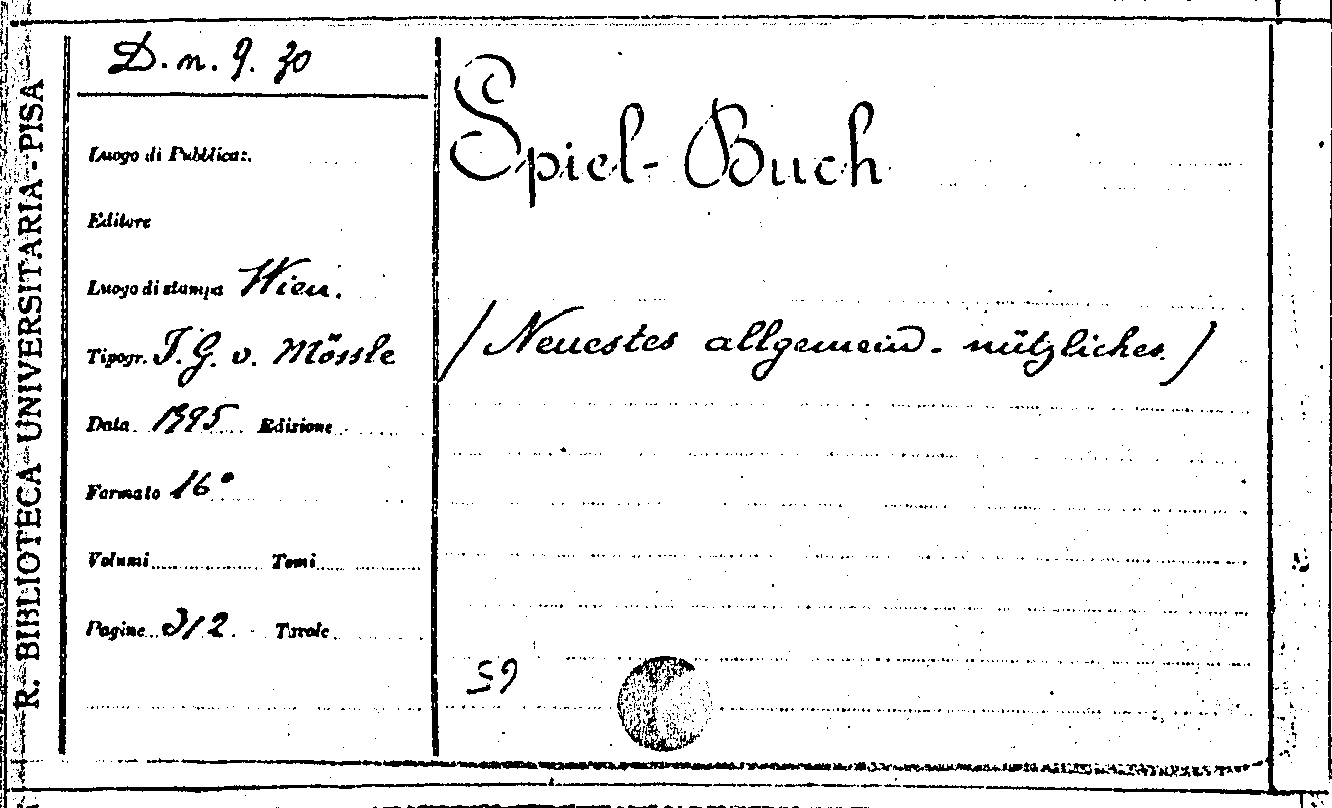 R. BIBLIOTECA UNIVERSITARIA - PISA
D. n. 9. 30
Luogo di Pubblicaz.
Editore
Luogo di stampa Wien.
Tipogr. J. G. v. Mössle
Data 1795 Edizione
Formato 16°
Volumi Tomi
Pagine 312. Tavole
Spiel-Buch
(Neuestes allgemein-nützliches.)
59